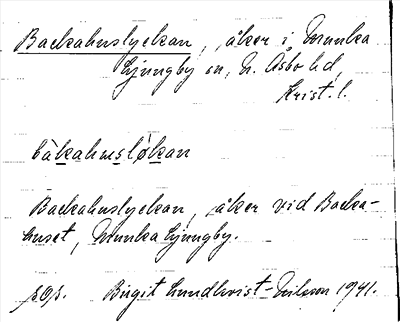 Backahuslyckan, åker i Munka
Ljungby sn, N. Åsbo hd,
Krist. l.
bàkahusløkan
Backahuslyckan, åker vid Backa-
huset, Munka Ljungby.
sOs. Birgit Lundkvist-Nilsson 1941.